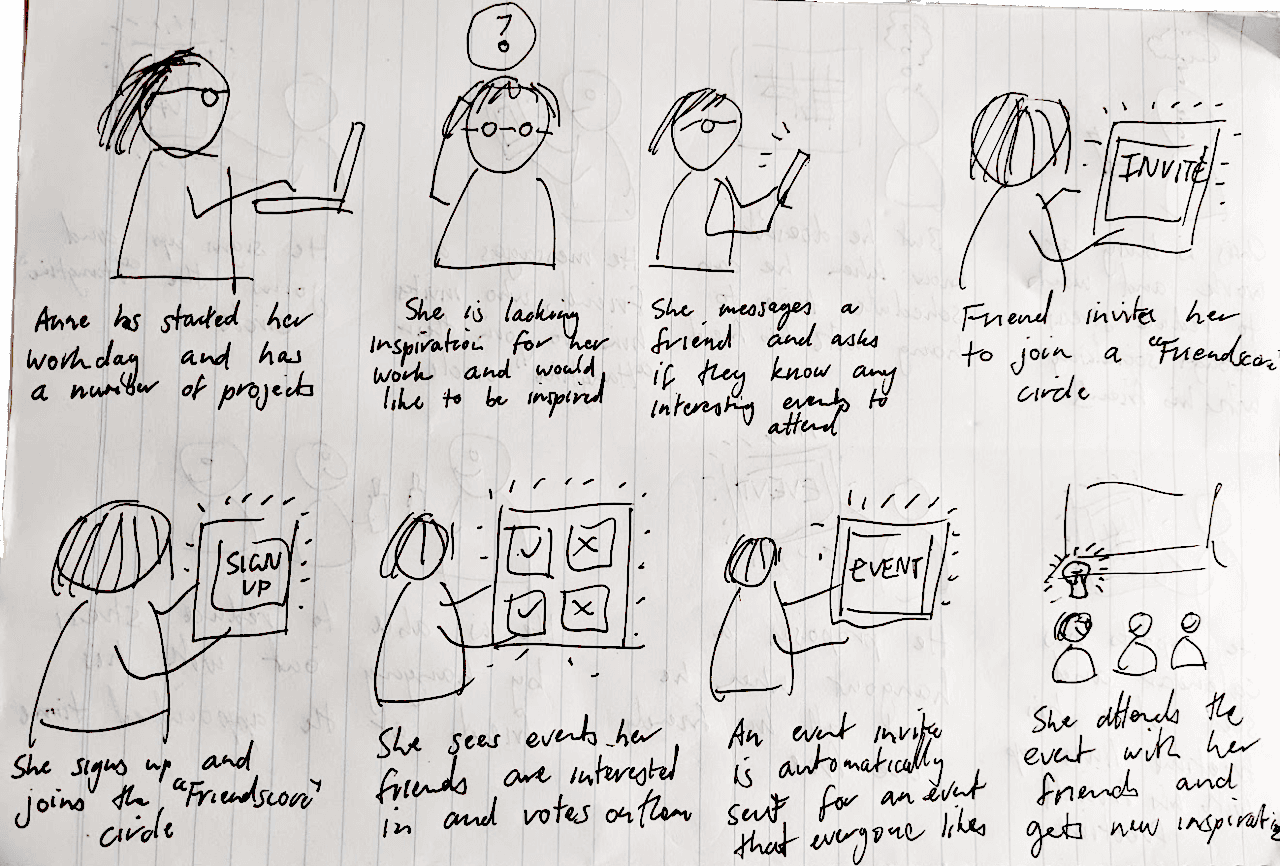 ?
Anne has started her
workday and has
a number of projects
She is lacking
inspiration for her
work and would
like to be inspired
She messages a
friend and asks
if they know any
interesting events to
attend
INVITE
Friend invites her
to join a "Friendscore"
circle
SIGN
UP
She signs up and
joins the "Friendscore"
circle
She sees events her
friends are interested
in and votes on them
EVENT
An event invite
is automatically
sent for an event
that everyone likes
She attends the
event with her
friends and
gets new inspiration